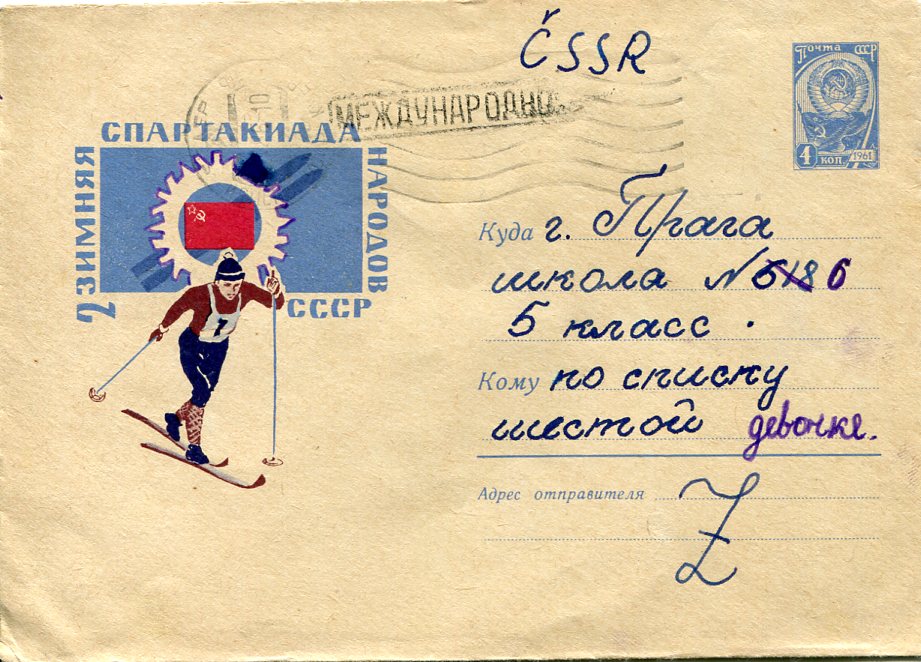 ČSSR
Почта СССР
4 коп. 1961
МЕЖДУНАРОДНОЕ
2 ЗИМНЯЯ
СПАРТАКИАДА
НАРОДОВ
СССР
1
Куда г. Прага
школа № 6
5 класс.
Кому по списку
шестой девочке.
Адрес отправителя
Z